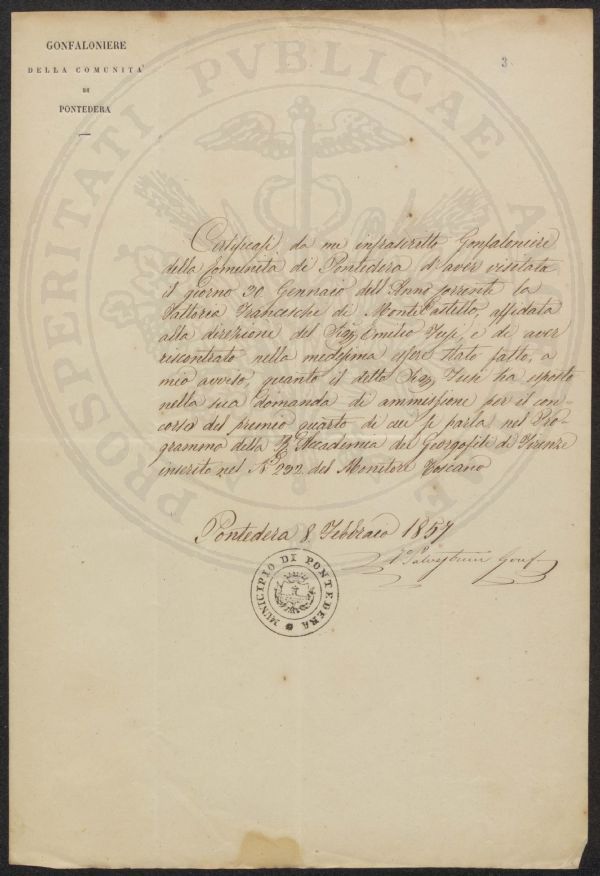 GONFALONIERE
DELLA COMUNITA'
DI
PONTEDERA
3
Certificasi da me infrascritto Gonfaloniere
della Comunità di Pontedera d'aver visitata
il giorno 30 Gennaio dell'Anno corrente la
Fattoria Franceschi di Monte Castello, affidata
alla direzione del Sig. Emilio Tusi, e di aver
riscontrato nella medesima essere stato fatto, a
mio avviso, quanto il detto Sig. Tusi ha esposto
nella sua domanda di ammissione per il con-
corso del premio quarto di cui si parla nel Pro-
gramma della R. Accademia dei Georgofili di Firenze
inserito nel N. 292 del Monitore Toscano
Pontedera 8 Febbraio 1857
Gonf.
MUNICIPIO DI PONTEDERA
PROSPERITATI PVBLICAE